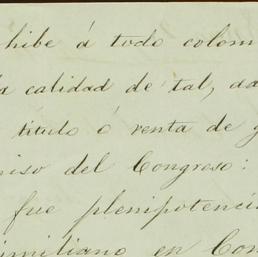 hibe á todo colom
a calidad de tal, da
título ó renta de g
iso del Congreso:
fue plenipotenci
imiliano en Con